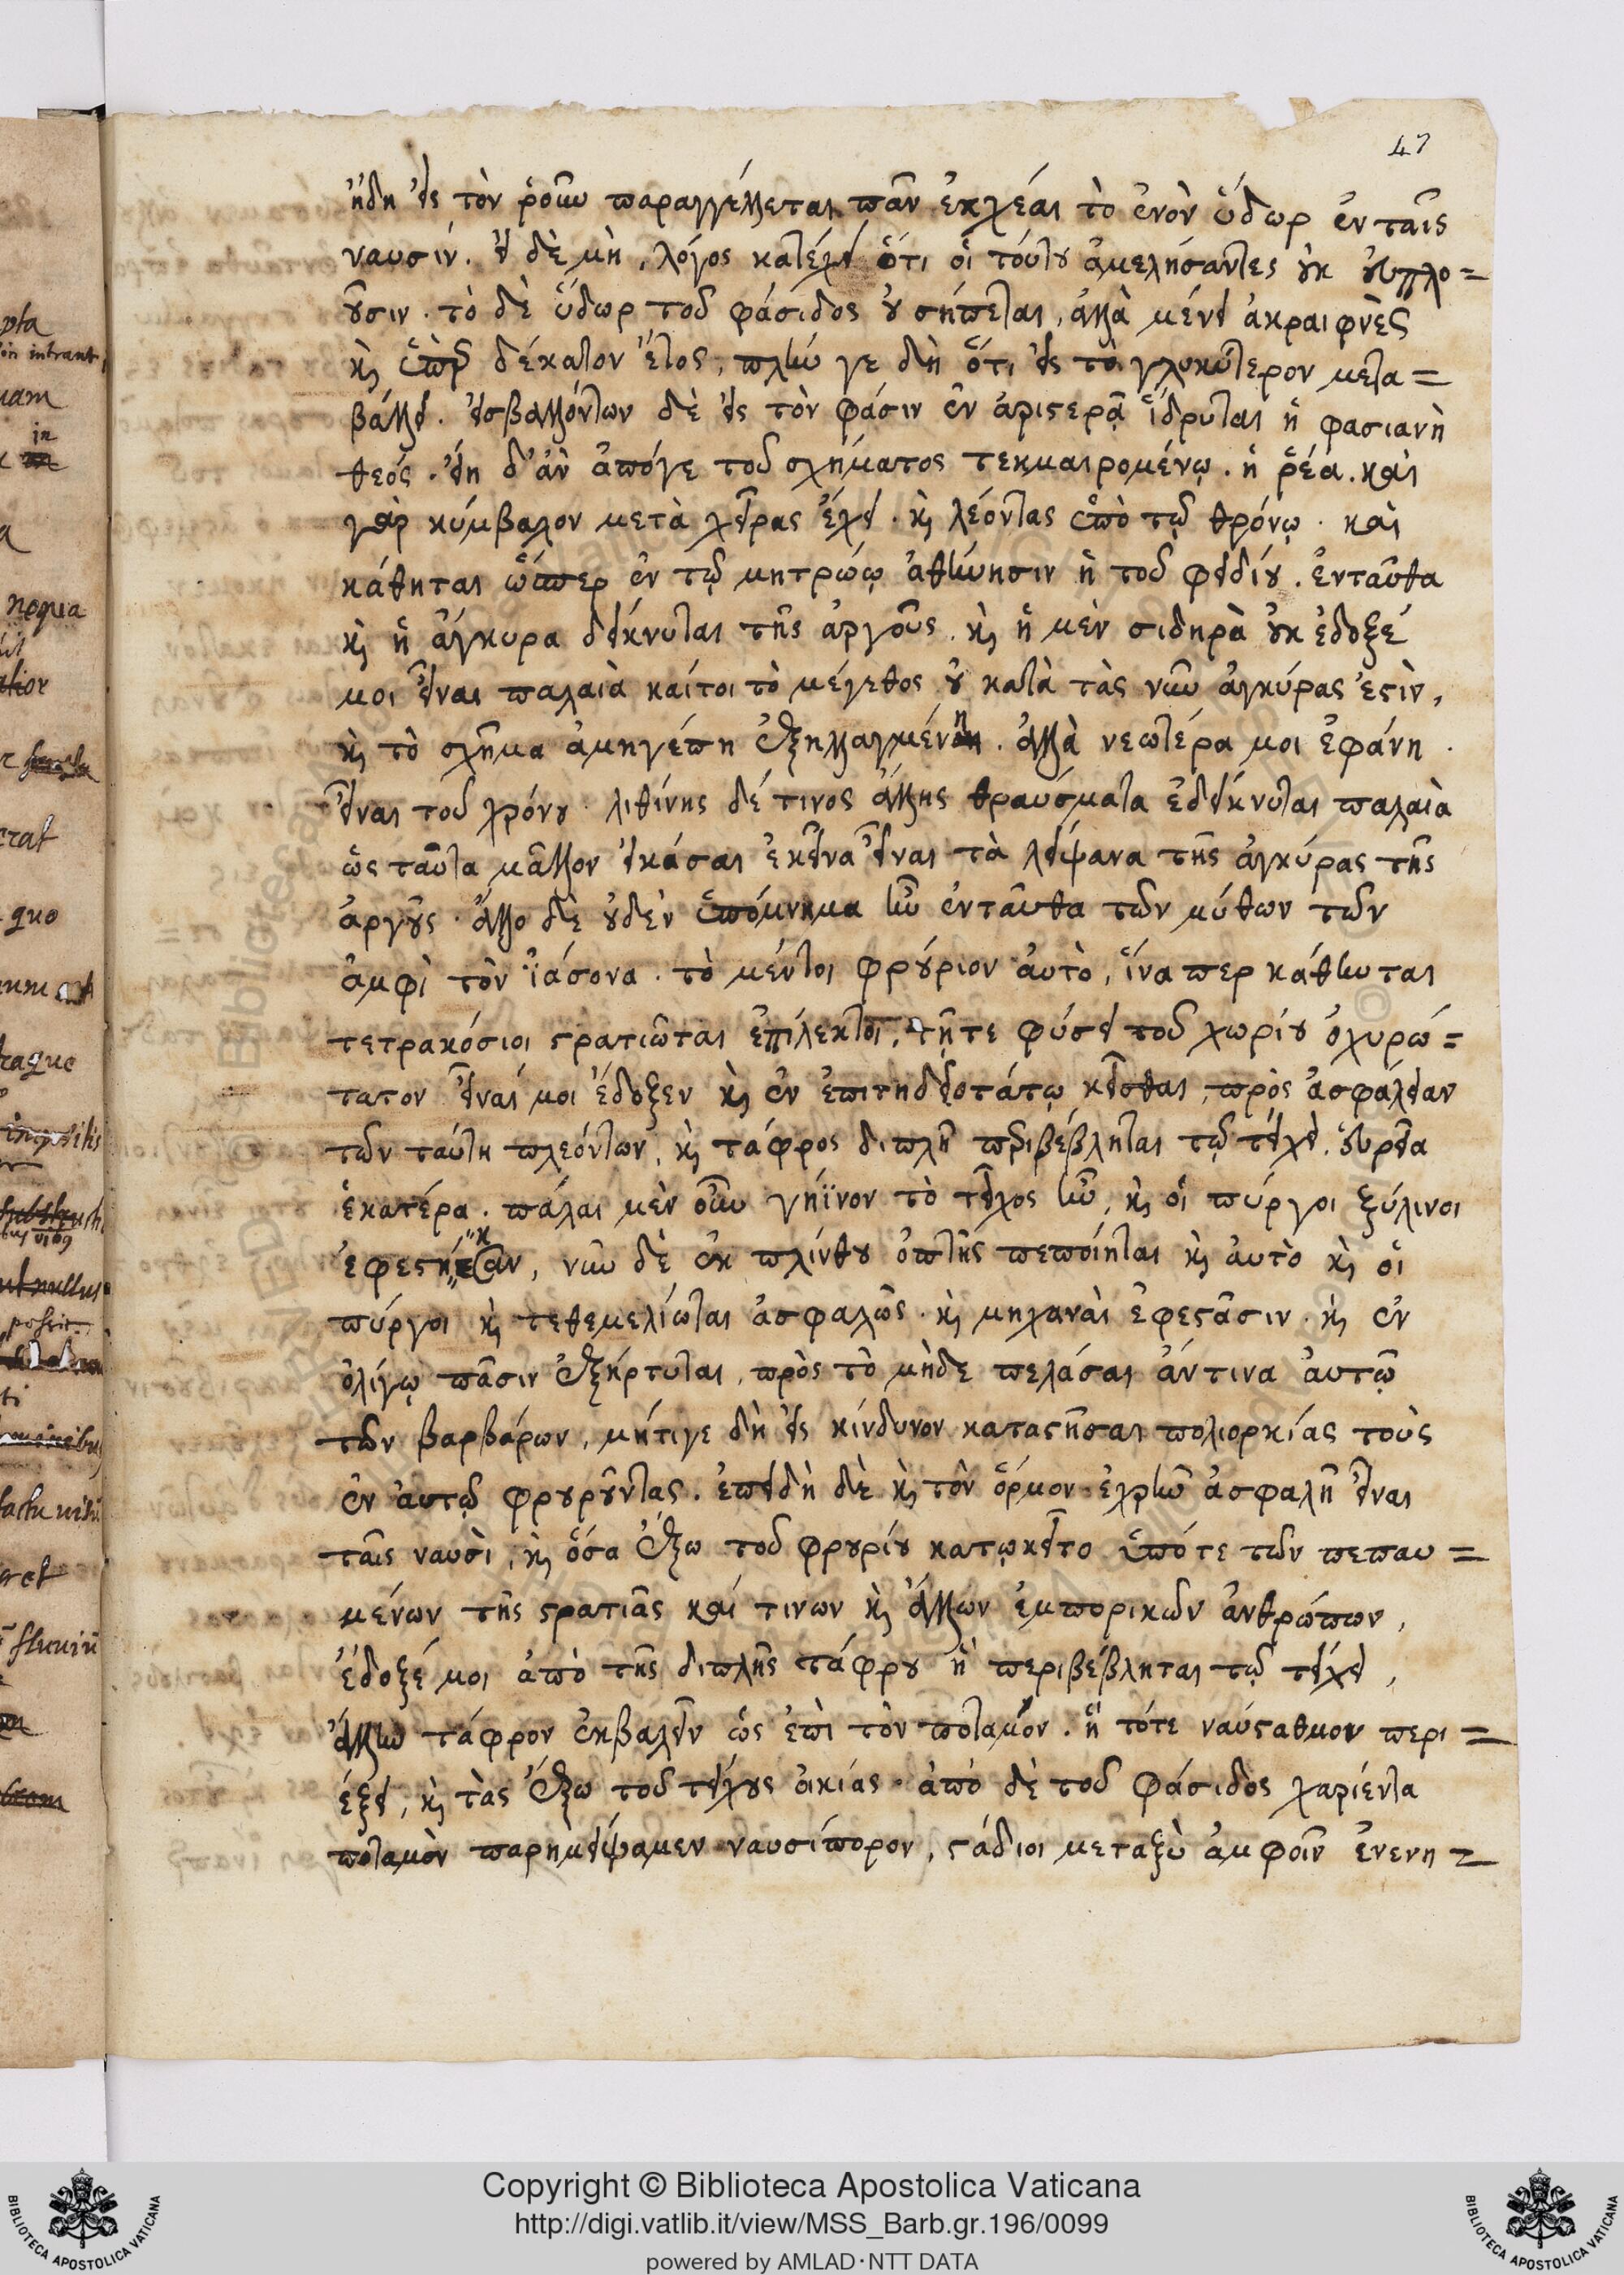 47
ἤδη εἰς τὸν ῥοῦν παραγγέλλεται πᾶν ἐκχέαι τὸ ἐνὸν ὕδωρ ἐν ταῖς
ναυσίν. εἰ δὲ μὴ, λόγος κατέχει ὅτι οἱ τούτου ἀμελήσαντες οὐκ εὐπλο=
οῦσιν. τὸ δὲ ὕδωρ τοῦ φάσιδος οὐ σήπεται, ἀλλὰ μένει ἀκραιφνὲς
καὶ ὑπὲρ δέκατον ἔτος, πλὴν γε δὴ ὅτι εἰς τὸ γλυκύτερον μετα=
βάλλει. εἰσβαλλόντων δὲ εἰς τὸν φάσιν ἐν ἀριστερᾷ ἵδρυται ἡ φασιανὴ
θεός. εἴη δ' ἂν ἀπόγε τοῦ σχήματος τεκμαιρομένῳ. ἡ ῥέα. καὶ
γὰρ κύμβαλον μετὰ χεῖρας ἔχει. καὶ λέοντας ὑπὸ τῷ θρόνῳ. καὶ
κάθηται ὥσπερ ἐν τῷ μητρώῳ ἀθήνησιν ἡ τοῦ φειδίου. ἐνταῦθα
καὶ ἡ ἄγκυρα δείκνυται τῆς ἀργοῦς. καὶ ἡ μὲν σιδηρὰ οὐκ ἔδοξέ
μοι εἶναι παλαιὰ καίτοι τὸ μέγεθος οὐ κατὰ τὰς νῦν ἀγκύρας ἐστὶν,
καὶ τὸ σχῆμα ἀμηγέπη ἐξηλλαγμένη. ἀλλὰ νεωτέρα μοι ἐφάνη.
εἶναι τοῦ χρόνου. λιθίνης δέ τινος ἄλλης θραύσματα ἐδείκνυται παλαιὰ
ὡς ταῦτα μᾶλλον εἰκάσαι ἐκεῖνα εἶναι τὰ λείψανα τῆς ἀγκύρας τῆς
ἀργοῦς. ἄλλο δὲ οὐδὲν ὑπόμνημα ἦν ἐνταῦθα τῶν μύθων τῶν
ἀμφὶ τὸν ἰάσονα. τὸ μέντοι φρούριον αὐτὸ, ἵνα περ κάθηνται
τετρακόσιοι στρατιῶται ἐπίλεκτοι, τῇ τε φύσει τοῦ χωρίου ὀχυρώ=
τατον εἶναί μοι ἔδοξεν καὶ ἐν ἐπιτηδειοτάτῳ κεῖσθαι, πρὸς ἀσφάλειαν
τῶν ταύτῃ πλεόντων, καὶ τάφρος διπλῆ περιβέβληται τῷ τείχει. εὐρεῖα
ἑκατέρα. πάλαι μὲν οὖν γήϊνον τὸ τεῖχος ἦν, καὶ οἱ πύργοι ξύλινοι
ἐφεστήκεσαν, νῦν δὲ ἐκ πλίνθου ὀπτῆς πεποίηται καὶ αὐτὸ καὶ οἱ
πύργοι καὶ τεθεμελίωται ἀσφαλῶς. καὶ μηχαναὶ ἐφεστᾶσιν. καὶ ἐν
ὀλίγῳ πᾶσιν ἐξήρτυται, πρὸς τὸ μὴδε πελάσαι ἄντινα αὐτῷ
τῶν βαρβάρων, μήτιγε δὴ εἰς κίνδυνον καταστῆσαι πολιορκίας τοὺς
ἐν αὐτῷ φρουροῦντας. ἐπειδὴ δὲ καὶ τὸν ὅρμον ἐχρῆν ἀσφαλῆ εἶναι
ταῖς ναυσὶ, καὶ ὅσα ἔξω τοῦ φρουρίου κατῳκεῖτο ὑπό τε τῶν πεπαυ=
μένων τῆς στρατιᾶς καί τινων καὶ ἄλλων ἐμπορικῶν ἀνθρώπων,
ἔδοξέ μοι ἀπὸ τῆς διπλῆς τάφρου ἣ περιβέβληται τῷ τείχει,
ἄλλην τάφρον ἐκβαλεῖν ὡς ἐπὶ τὸν ποταμόν. ἣ τότε ναύσταθμον περι=
έξει, καὶ τὰς ἔξω τοῦ τείχους οἰκίας. ἀπὸ δὲ τοῦ φάσιδος χαρίεντα
ποταμὸν παρημείψαμεν ναυσίπορον, στάδιοι μεταξὺ ἀμφοῖν ἐνενη=
Copyright © Biblioteca Apostolica Vaticana
http://digi.vatlib.it/view/MSS_Barb.gr.196/0099
powered by AMLAD·NTT DATA
BIBLIOTECA APOSTOLICA VATICANA
BIBLIOTECA APOSTOLICA VATICANA